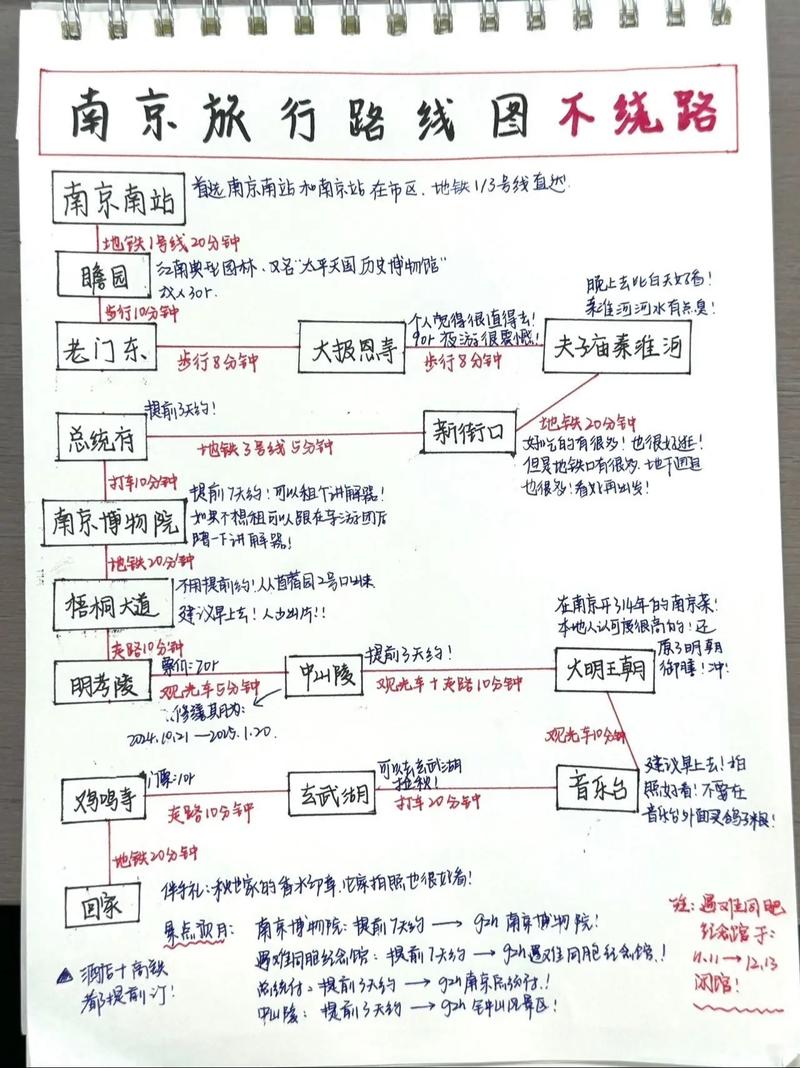 南京旅行路线图不绕路
南京南站
首选南京南站和南京站在市区、地铁1/3号线直达
地铁1号线20分钟
瞻园
江南典型园林、又名"太平天国历史博物馆"
成人30r
步行10分钟
老门东
步行8分钟
大报恩寺
个人觉得很值得去!
90r 夜游很震憾!
步行8分钟
晚上去比白天好看!
秦淮河河水有点臭!
夫子庙秦淮河
地铁20分钟
总统府
提前3天约!
地铁3号线5分钟
新街口
好吃的有很多!也很好逛!
但是地铁口有很多、地下通道
也很多!看好再出发!
打车10分钟
南京博物院
提前7天约!可以租个讲解器!
如果不想租可以跟在导游团后
蹭一下讲解器!
地铁20分钟
梧桐大道
不用提前约!从苜蓿园2号口出来
建议早上去!人少出片!!
走路10分钟
明孝陵
票价:70r
观光车5分钟
中山陵
提前3天约!
修缮其月为:
2024.10.21—2025.1.20.
观光车+走路10分钟
在南京开了14年的南京菜!
本地人认可度很高的!还
原了明朝
御膳!冲!
大明王朝
观光车10分钟
鸡鸣寺
门票:10r
走路10分钟
玄武湖
可以去玄武湖
打车20分钟
音乐台
建议早上去!拍
照好看!不要在
音乐台外面买鸽子粮!
地铁20分钟
回家
伴手礼:
家拍照也很好看!
景点预月:
南京博物院:提前7天约→g2h南京博物院!
遇难同胞纪念馆:提前7天约→g2h遇难同胞纪念馆!
总统付:提前3天约→g2h南京总统付!
中山陵:提前3天约→g2h钟山风景区!
▲酒店+高铁
都提前订!
注:遇难同胞
纪念馆于:
11.11→12.13
闭馆!